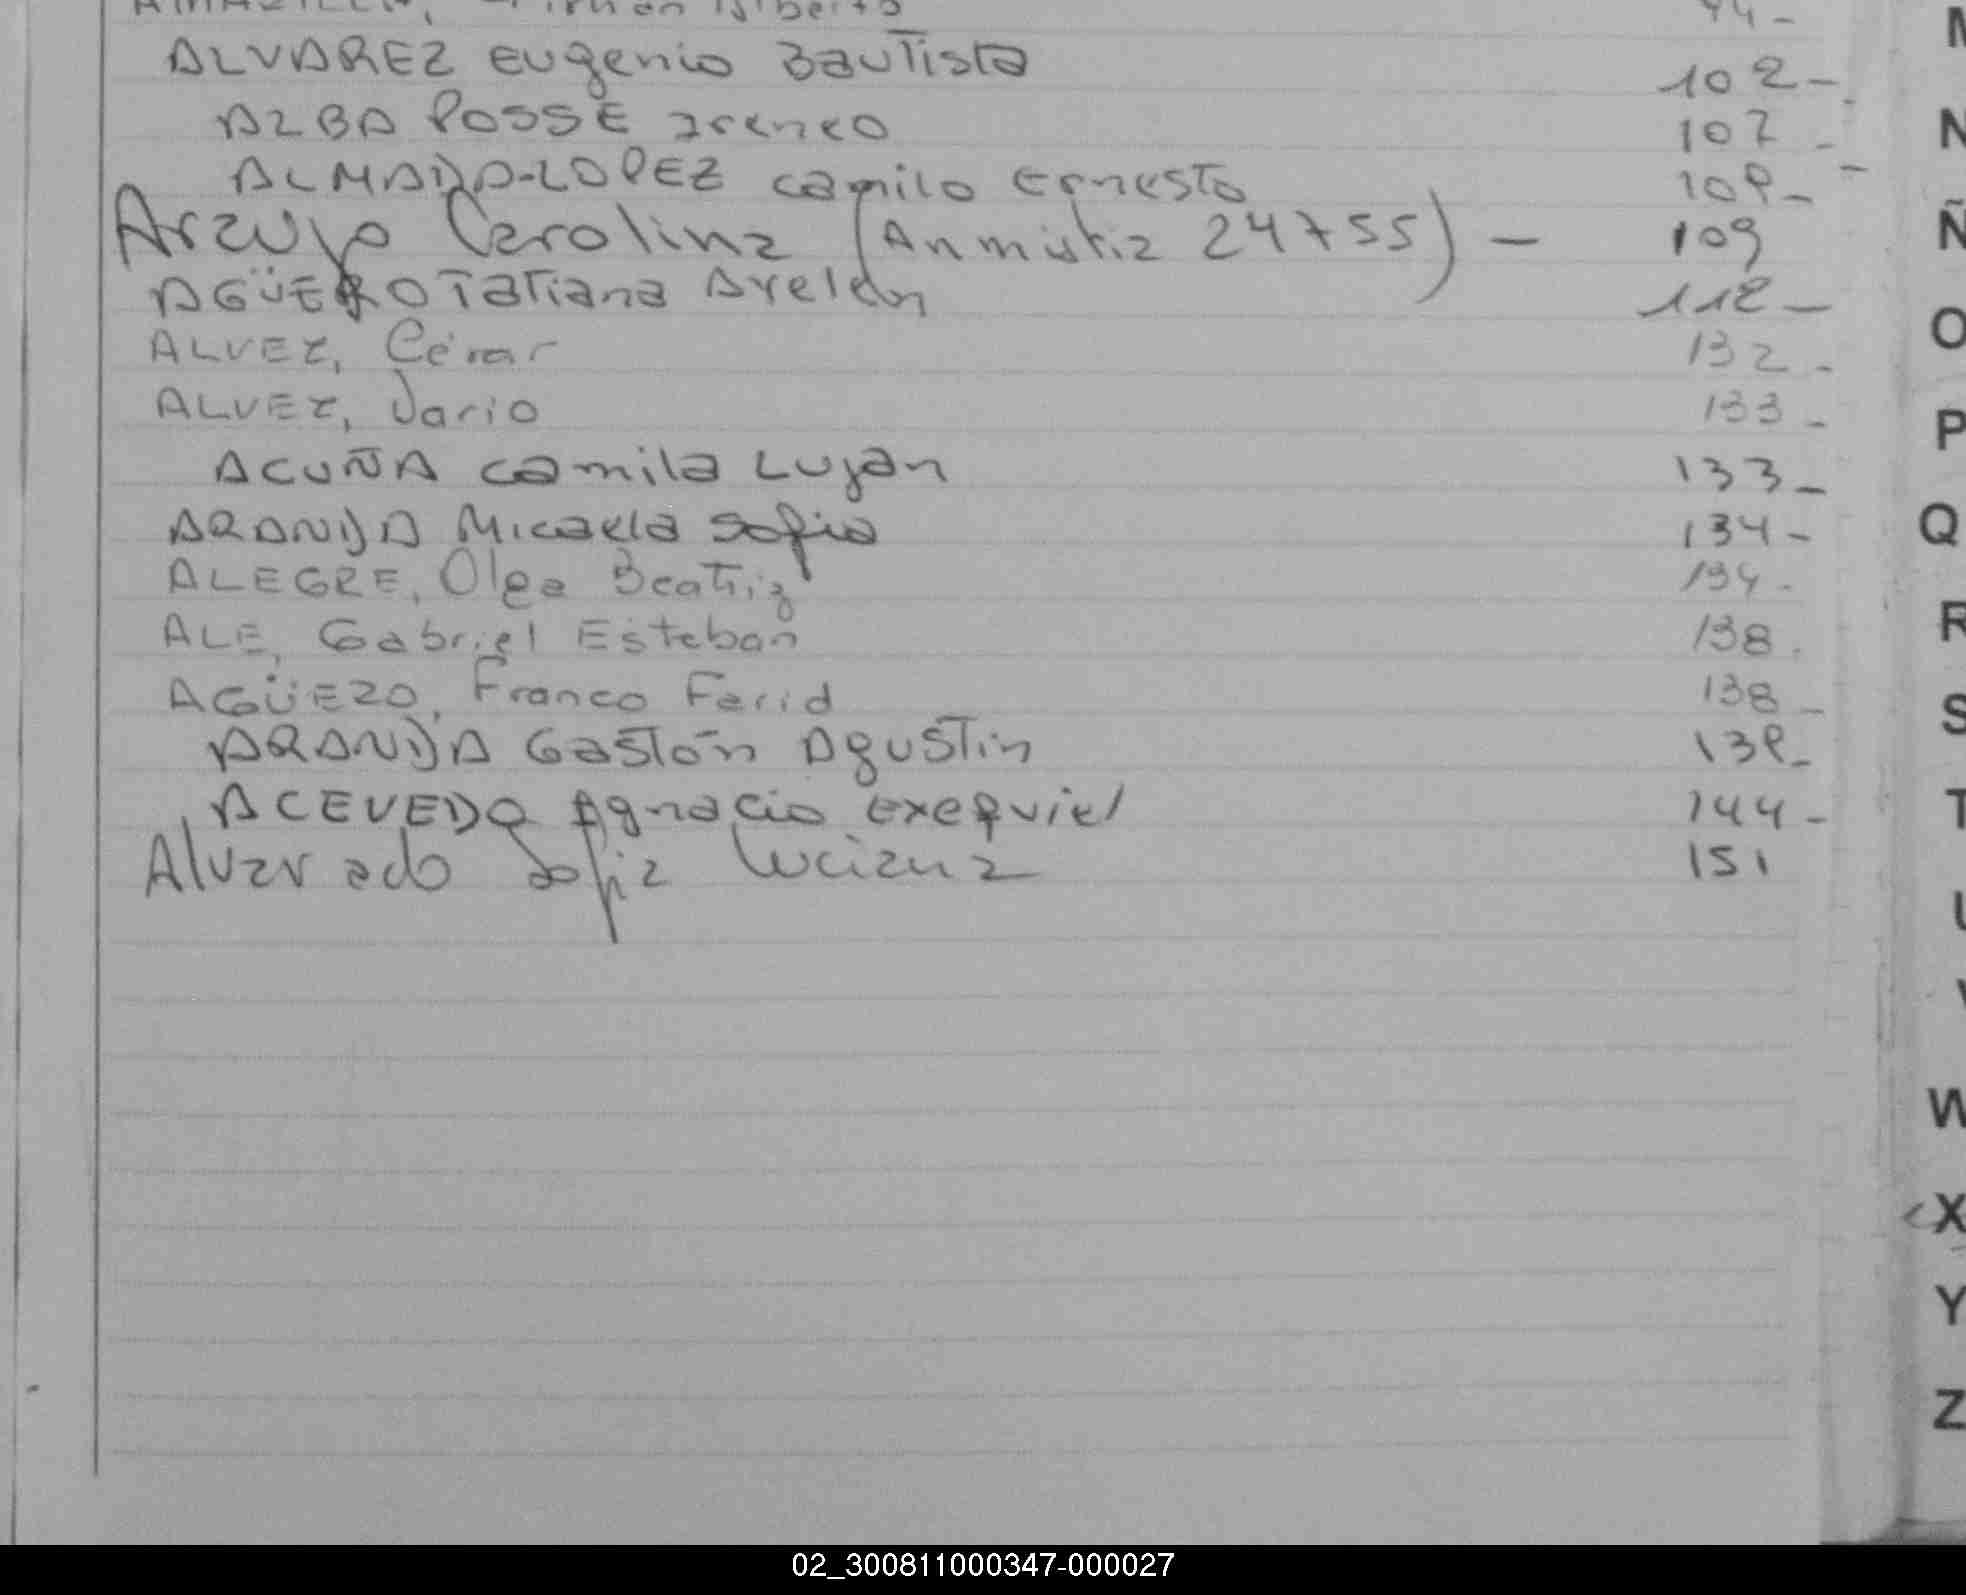 ALVAREZ Eugenio Bautista 102-
ALBA POSSE Ireneo 107-
ALMADA-LOPEZ Camilo Ernesto 109-
Araujo Carolina (Anmistia 24755) - 109
AGÜERO Tatiana Ayelen 112-
ALVEZ, César 132-
ALVEZ, Dario 133-
ACUÑA Camila Lujan 133-
ARANDA Micaela Sofia 134-
ALEGRE, Olga Beatriz 134-
ALE, Gabriel Esteban 138.
AGÜERO, Franco Farid 138-
ARANDA Gastón Agustin 139-
ACEVEDO Ignacio Exequiel 144-
Alvarado Sofia Luciana 151
M
N
Ñ
O
P
Q
R
S
T
U
V
W
X
Y
Z
02_300811000347-000027